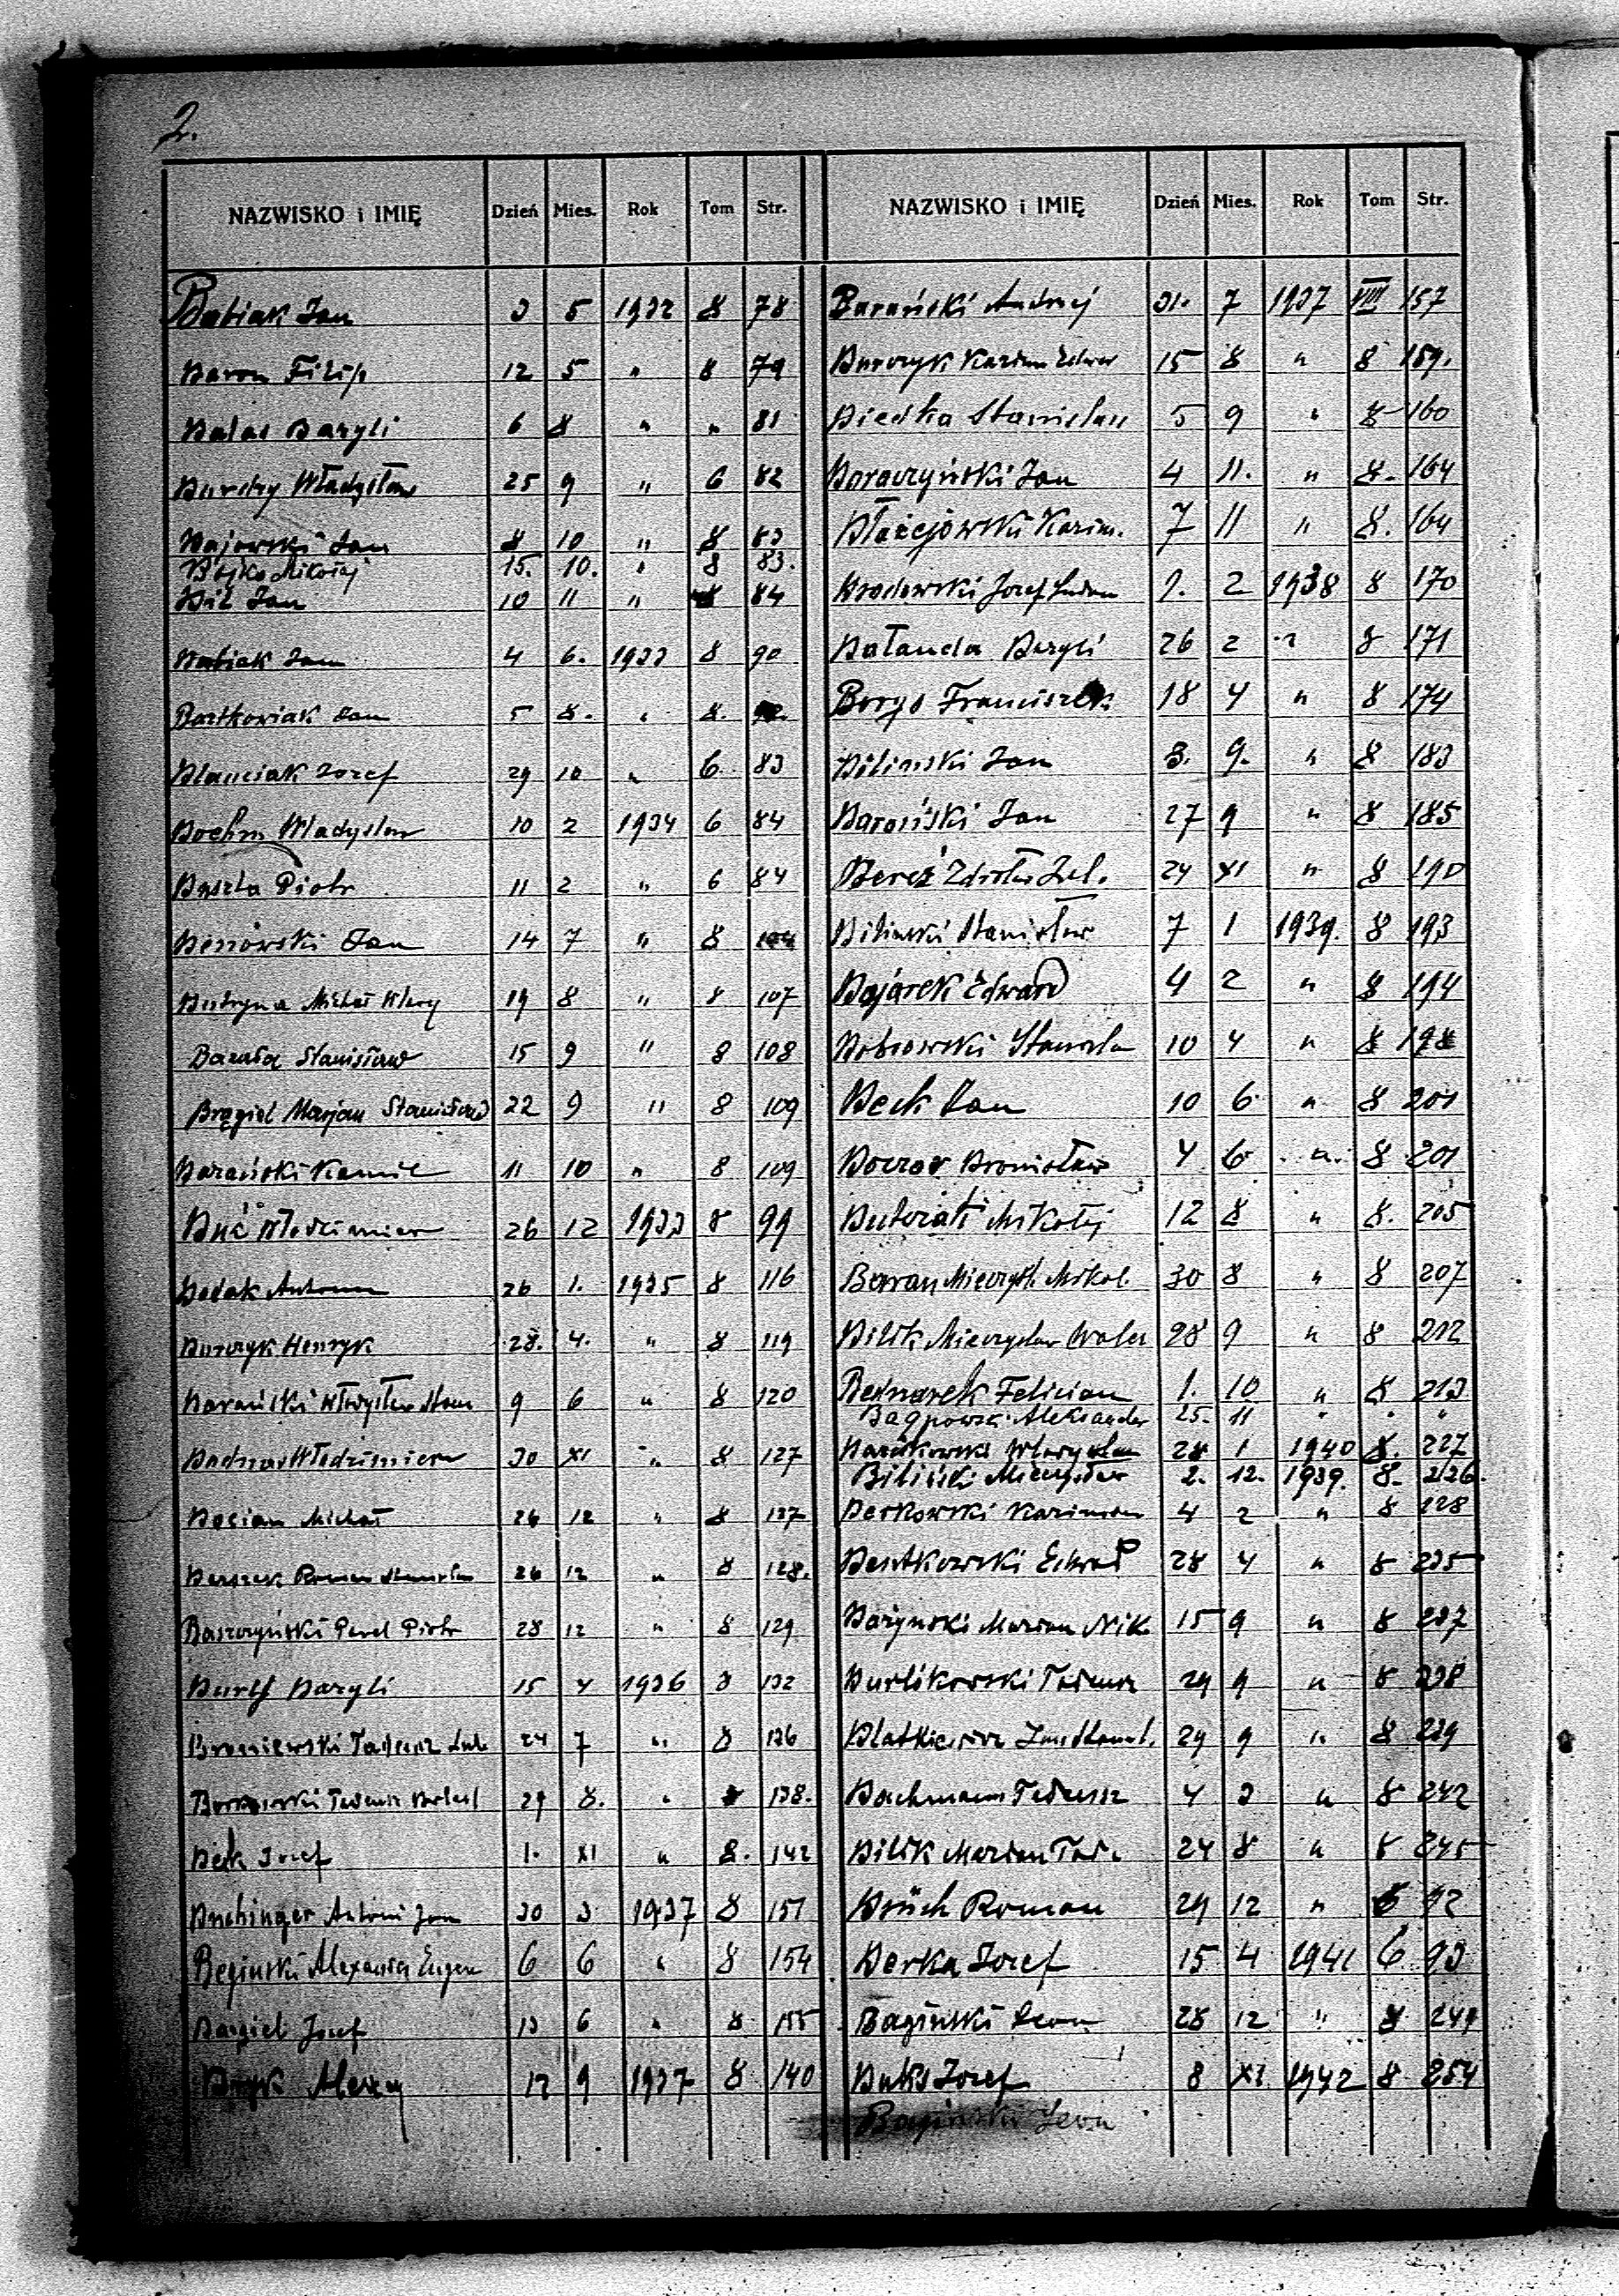 2.
NAZWISKO i IMIĘ Dzień Mies. Rok Tom Str.
Babiak Jan 3 5 1932 8 78
Baron Filip 12 5 " 8 79
Balas Bazyli 6 8 " " 81
Władysław 25 9 " 6 82
Bajowski Jan 8 10 " 8 83
Bojko Mikołaj 15. 10. " 8 83.
Bil Jan 10 11 " 8 84
Babiak Jan 4 6. 1933 8 90
Bartkowiak Jan 5 8. " 8.
Blanciak Jozef 29 10 " 6. 83
Boehm Władysław 10 2 1934 6 84
Baszta Piotr 11 2 " 6 84
Jan 14 7 " 8 104
Butryna Michał 19 8 " 8 107
Stanisław 15 9 " 8 108
Brągiel Marjan Stanisław 22 9 " 8 109
Barański Kamil 11 10 " 8 109
Buć Włodzimierz 26 12 1933 8 99
Bodak Antoni 26 1. 1935 8 116
Burczyk Henryk 28. 4. " 8 119
Barański Władysław 9 6 " 8 120
Włodzimierz 30 XI " 8 127
Bocian Michał 26 12 " 8 127
Roman Stanisław 26 12 " 8 128.
Baszczyński Paweł Piotr 28 12 " 8 129
Bazyli 15 4 1936 8 132
Broniewski Tadeusz 24 7 " 8 136
Tadeusz 29 8. " 8 138.
Bek Józef 1. XI " 8. 142
Buchinger Antoni Jan 30 3 1937 8 151
Beginski Alexander Eugen 6 6 " 8 154
Bargiel Józef 13 6 " 8 155
Bryk 12 9 1937 8 140
NAZWISKO i IMIĘ Dzień Mies. Rok Tom Str.
Barański Andrzej 31. 7 1937 VIII 157
Burczyk Kazim Edwar 15 8 " 8 159.
Biedka Stanisław 5 9 " 8 160
Boraczyński Jan 4 11. " 8. 164
Błażejowski Kazim. 7 11 " 8. 164
Brodowski Jozef 1. 2 1938 8 170
Bałanda Bazyli 26 2 " 8 171
Borys Franciszek 18 4 " 8 174
Bilinski Jan 3. 9. " 8 183
Barański Jan 27 9 " 8 185
Bereź Zdzisław Jul. 24 XI " 8 190
Bilinski Stanisław 7 1 1939. 8 193
Bajarek Edward 4 2 " 8 194
Bobrowski Stanisła 10 4 " 8 198
Beck Jan 10 6 " 8 201
Boczar Bronisław 4 6 " 8 201
Mikołaj 12 8 " 8. 205
Baran Mieczysł. Mikol. 30 8 " 8 207
Bilik Mieczysław Waler 28 9 " 8 212
Bednarek Felician 1. 10 " 8 213
Aleksander 25. 11 " " "
Władysław 28 1 1940 8. 227
Biliński Mieczysław 2. 12. 1939. 8. 226.
Berkowski Kazimierz 4 2 " 8 228
Bentkowski Edward 28 4 " 8 235
Bażynski Marian Mik. 15 9 " 8 237
Burlikowski Tadeusz 29 9 " 8 238
Blatkiewicz 29 9 " 8 239
Bachmann Tadeusz 4 3 " 8 242
Bilik Marian Tad. 24 8 " 8 245
Brüch Roman 29 12 " 6 92
Berka Jozef 15 4 1941 6 93
Bagiński Leon 28 12 " 8 249
Buks Jozef 8 XI 1942 8 254
Bagiński Leon